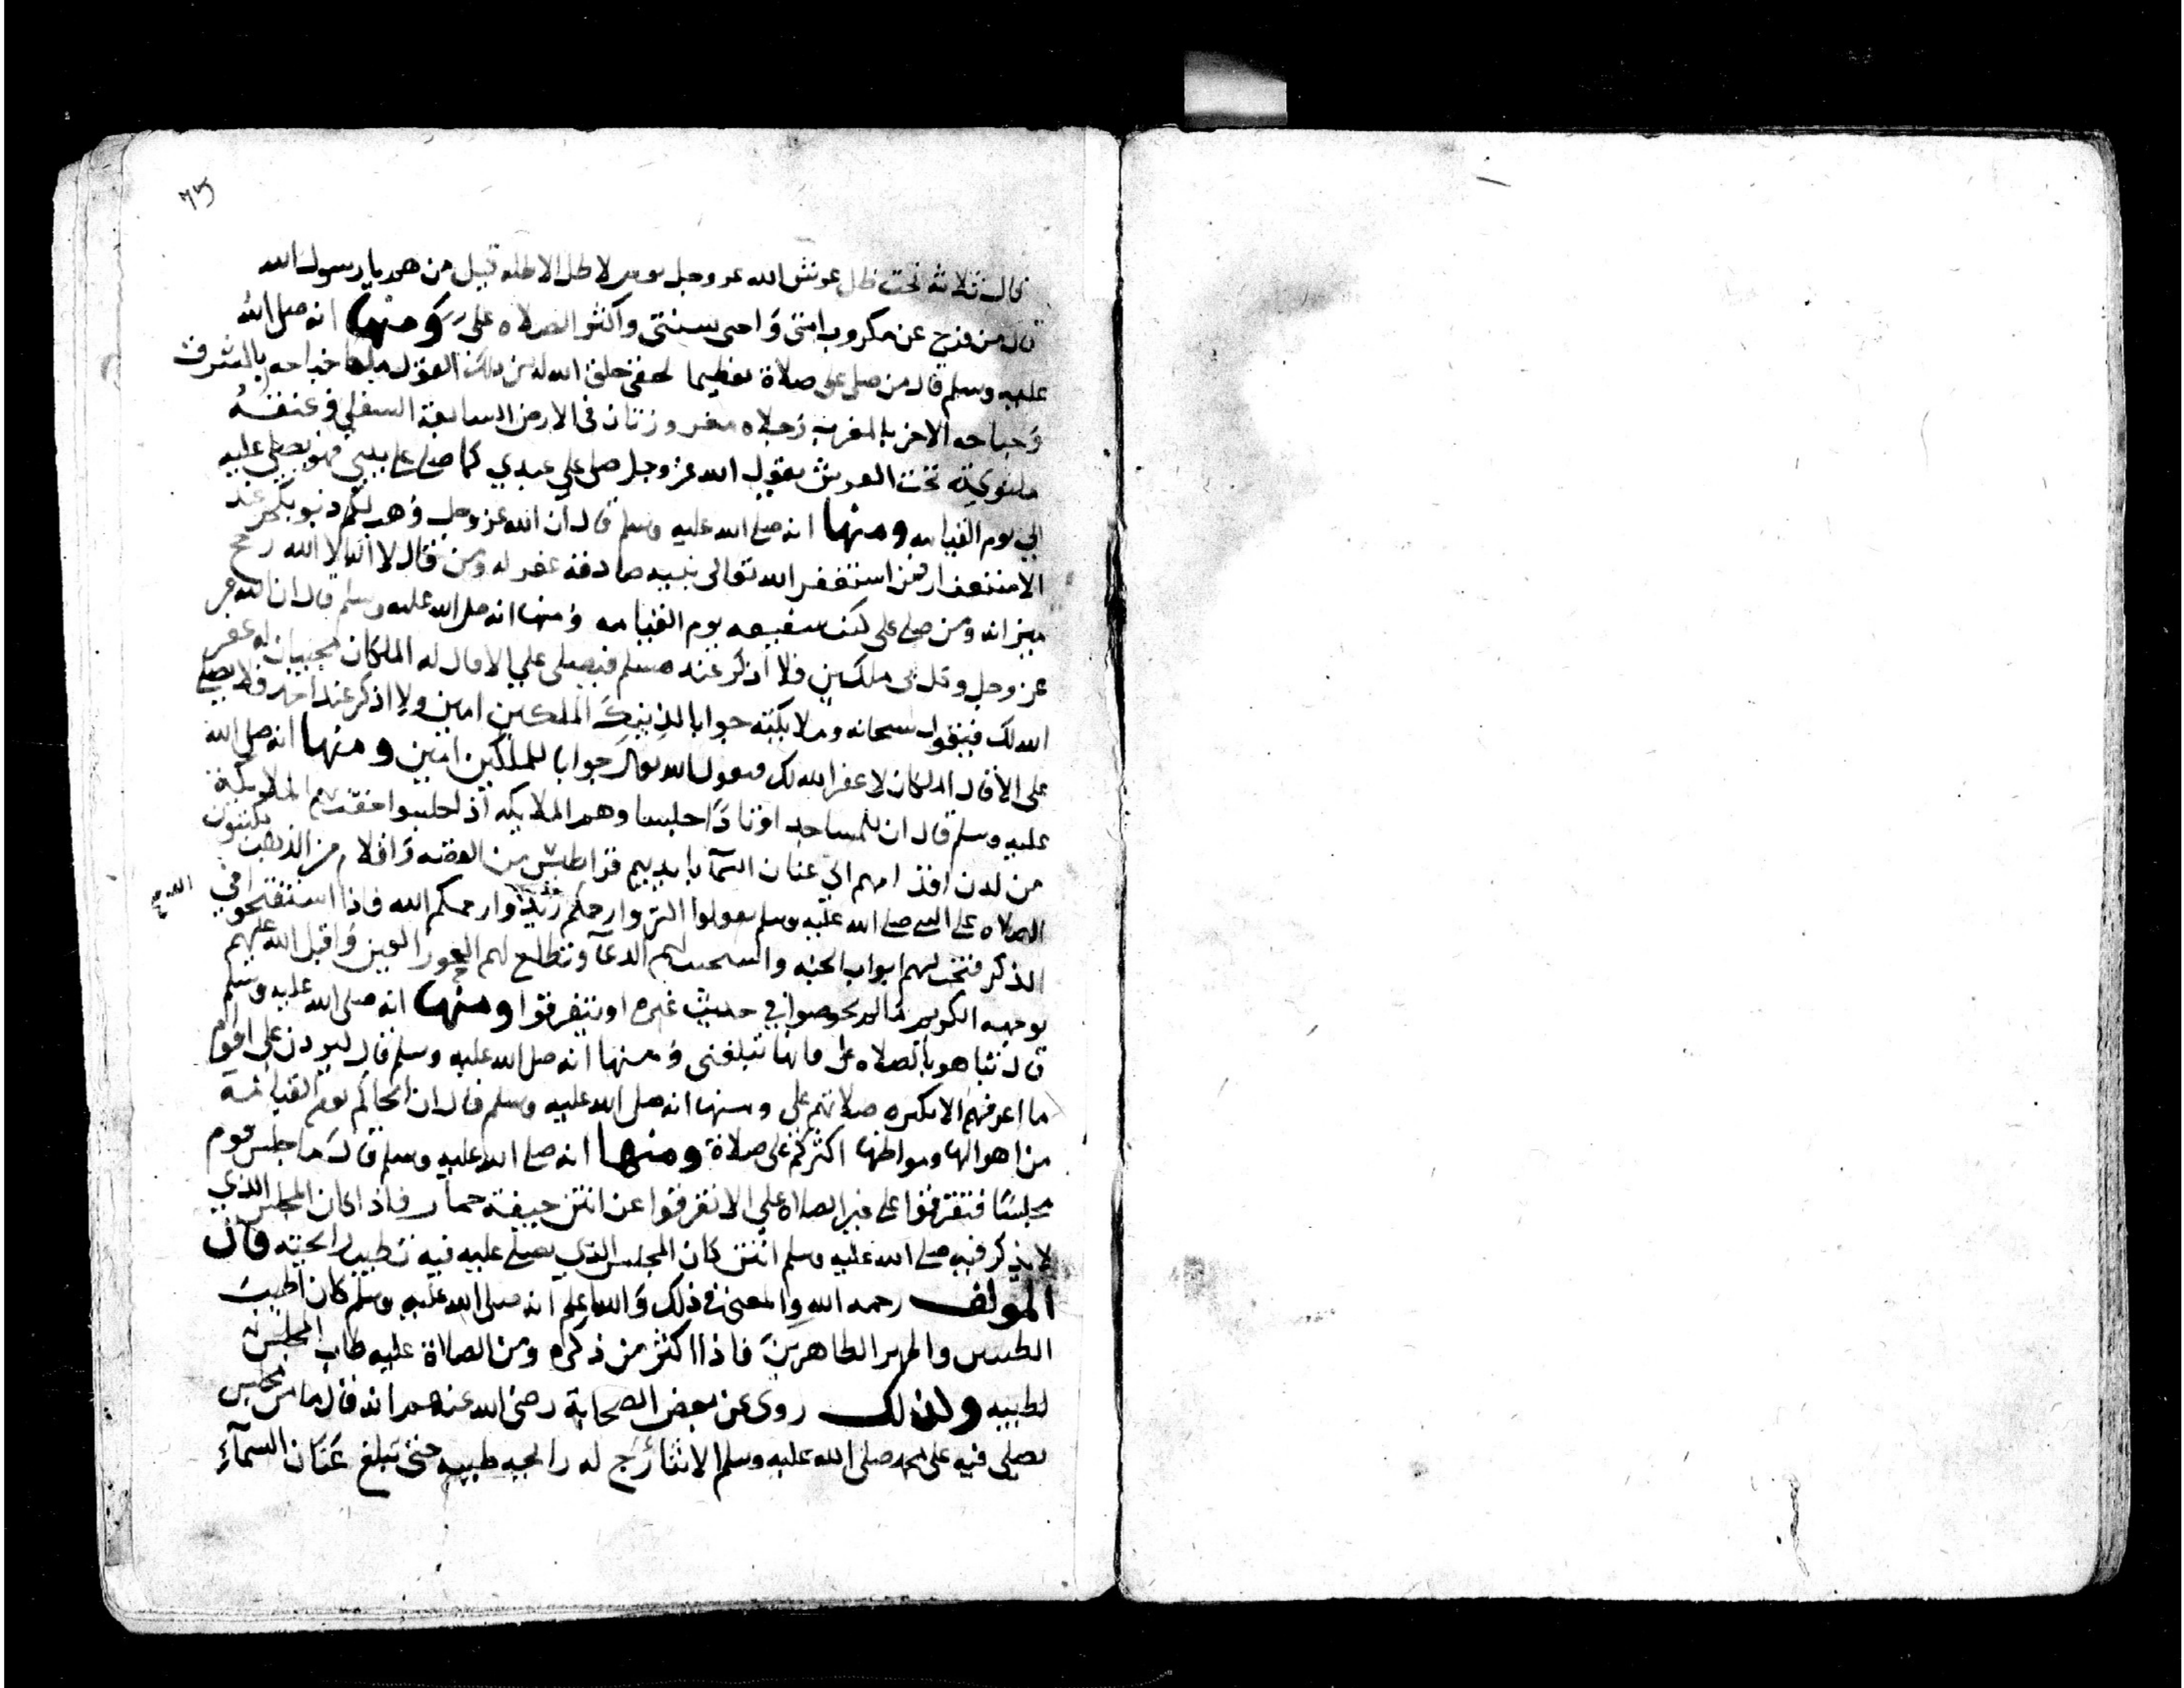 ٦٥
قال ثلاثة تحت ظل عرش الله عز وجل يوم لا ظل الا ظله قيل من هم يا رسول الله
قال من فرج عن مكروب امتي وَاحيى سنتي واكثر الصلاه على وَمنها انه صلى الله
عليه وسلم قال من صلى على صلاة تعظيما لحقي خلق الله له من ذلك القول ملكا جناحه بالمشرق
وَجناحه الاخر بالمغرب وَرجلاه مغروزتان في الارض السابعة السفلى وَعنقهُ
ملتوية تحت العرش يقول الله عز وجل صلى على عبدي كما صلى على نبيي فهو يصلي عليه
الي يوم القيامه ومنها انه صلى الله عليه وسلم قال ان الله عز وجل وَهب لكم ذنوبكم عند
الاستغفار فمن استغفر الله تعالى بنيه صادقة غفر له وَمن قال لا اله الا الله رجح
ميزانه ومن صلى على كنت شفيعه يوم القيامه وَمنها انه صلى الله عليه وسلم قال ان الله عز
عز وجل وكل بي ملكين فلا اذكر عند مسلم فيصلى علي الا قال له الملكان مجيبان له غفر
الله لك فيقول سبحانه وملايكته جوابا لذينك الملكين امين ولا اذكر عند احد فلا يصلي
على الا قال الملكان لا غفر الله لك فيقول الله تعالى جوابا للملكين امين ومنها انه صلى الله
عليه وسلم قال ان للمساجد اوتادًا جلسا وهم الملايكه اذا جلسوا حفت بهم الملايكة
من لدن اقدامهم الي عنان السمآ بايديهم قراطيس من الفضه وَاقلام من الذهب يكتبون
الصلاه على النبي صلى الله عليه وسلم يقولوا وارحمكم الله فاذا استفتحوا في
الذكر فتحت لهم ابواب الجنه واستجيب لهم الدعآ وتطلع لهم الحور العين وَاقبل الله عليهم
بوجهه الكريم مالم يخوضوا في حديث غيره او يتفرقوا ومنها انه صلى الله عليه وسلم
قال تباهوا بالصلاه على فانها تبلغني وَمنها انه صلى الله عليه وسلم قال ليردن على اقوام
ما اعرفهم الا بكثره صلاتهم على ومنها انه صلى الله عليه وسلم قال ان انجاكم يوم القيامة
من اهوالها ومواطنها اكثركم على صلاة ومنها انه صلى الله عليه وسلم قال ما جلس قوم
مجلسًا فتفرقوا على غير الصلاه علي الا تفرقوا عن انتن جيفة حمار فاذا كان المجلس الذي
لا يذكر فيه صلى الله عليه وسلم انتن كان المجلس الذي يصلى عليه فيه تطيب رايحته قال
المولف رحمه الله والمعنى في ذلك وَالله اعلم انه صلى الله عليه وسلم كان اطيبَ
الطيبين واطهر الطاهرينَ فاذا اكثر من ذكره ومن الصلاة عليه طاب المجلس
لطيبه ولذلك روى عن بعض الصحابة رضي الله عنهم انه قال ما من مجلس
يصلى فيه على محمد صلى الله عليه وسلم الا تتأرَّج له رايحه طيبه حتى تبلغ عَنَان السمآءِ